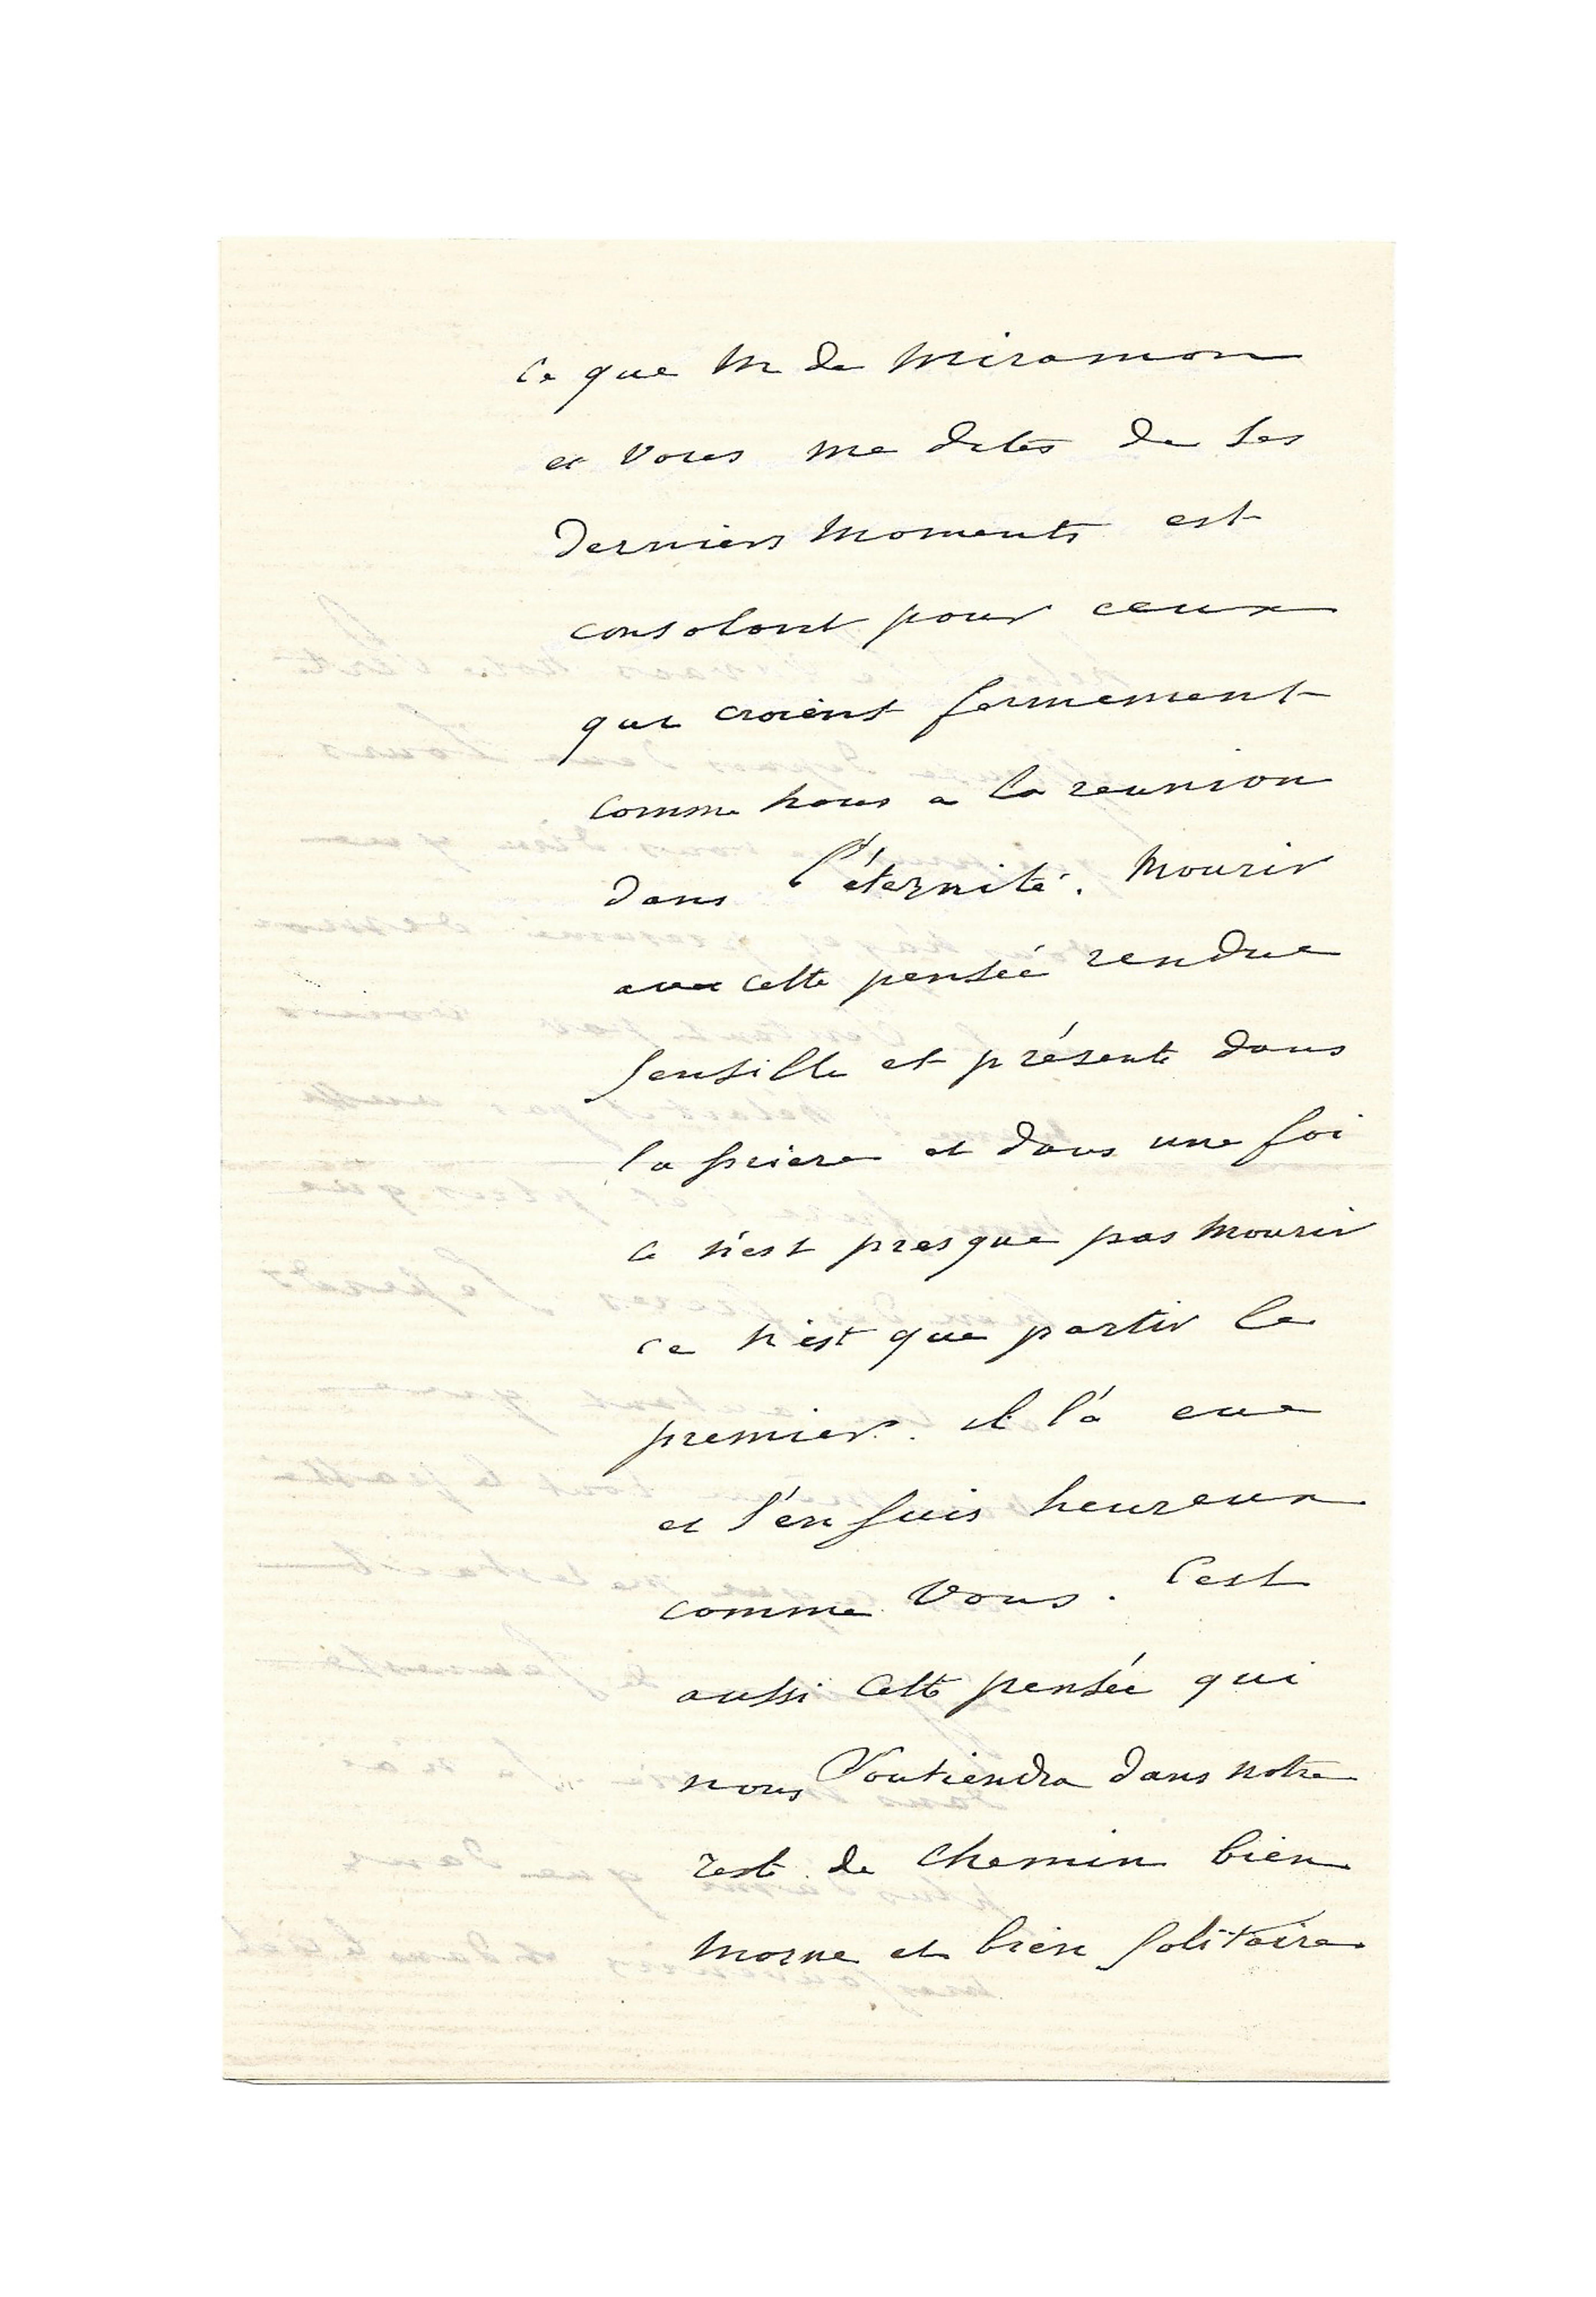 Ce que M de Miramon
et vous me dites de ses
derniers moments est
consolant pour ceux
qui croient fermement
comme nous a la reunion
dans l'éternité. Mourir
avec cette pensée rendue
sensible et présente dans
la priere et dans une foi
ce n'est presque pas mourir
ce n'est que partir le
premier. il l'a eue
et j'en suis heureux
comme vous. C'est
aussi cette pensée qui
nous soutiendra dans notre
reste de chemin bien
morne et bien solitaire